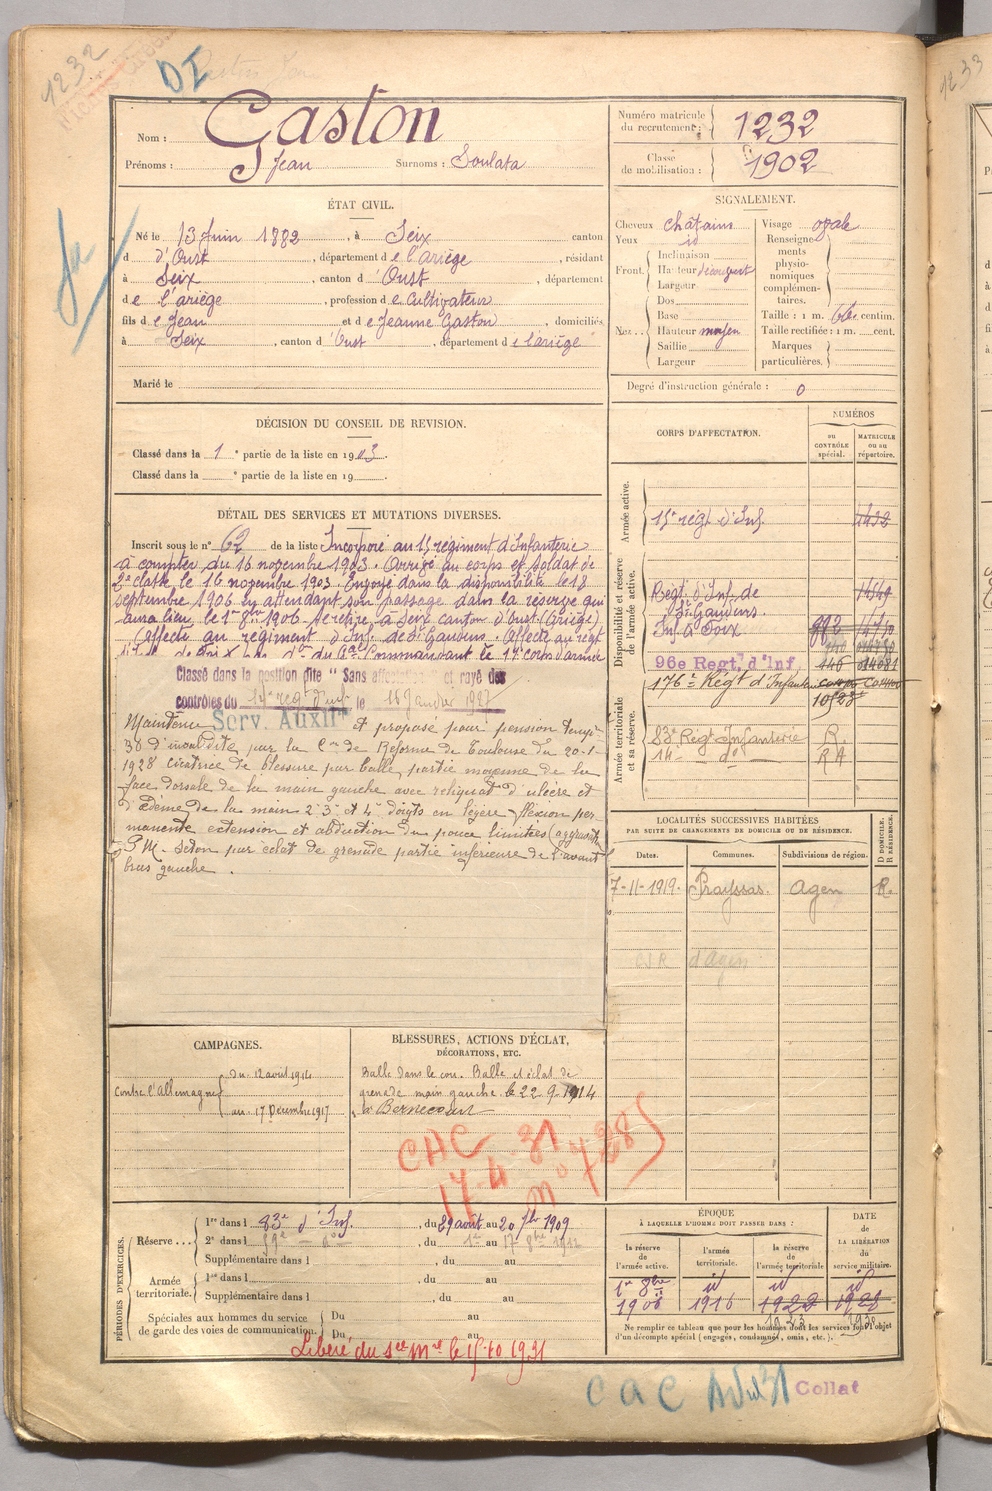 1232
DI
Nom : Gaston
Prénoms : Jean Surnoms : Soulata
Numéro matricule du recrutement : 1232
Classe de mobilisation : 1902
ÉTAT CIVIL.
Né le 13 Juin 1882, à Seix canton
d d'Oust, département de l'ariège, résidant
à Seix, canton d'Oust, département
de l'ariège, profession de Cultivateur
fils de Jean et de Jeanne Gaston, domiciliés
à Seix, canton d'Oust, département de l'ariège
Marié le
SIGNALEMENT.
Cheveux châtains Visage ovale
Yeux id
Front. Inclinaison
Hauteur découvert
Largeur
Nez... Dos
Base
Hauteur moyen
Saillie
Largeur
Renseignements physionomiques complémentaires.
Taille : 1 m. 66 centim.
Taille rectifiée : 1 m. cent.
Marques particulières.
Degré d'instruction générale : 0
DÉCISION DU CONSEIL DE REVISION.
Classé dans la 1e partie de la liste en 1903.
Classé dans la e partie de la liste en 19
DÉTAIL DES SERVICES ET MUTATIONS DIVERSES.
Inscrit sous le n° 62 de la liste Incorporé au 15 régiment d'Infanterie
à compter du 16 novembre 1903. Arrivé au corps et soldat de
2e classe le 16 novembre 1903. Envoyé dans la disponibilité le 18
septembre 1906 en attendant son passage dans la réserve qui
aura lieu, le 1er 8bre 1906. Se retire à Seix canton d'Oust (Ariège)
Affecté au régiment d'Inf. de St Gaudens. Affecté au régt
d'Inf. de Foix
Commandant le 17e corps d'armée
Classé dans la position dite " Sans affectation " et rayé des
contrôles du 14e reg d'inf le 16 Janvier 1927
Maintenu Serv. Auxil. et proposé pour pension temp.
d'invalidité par la Con de Réforme de Toulouse du 20-1-
1928 cicatrice de blessure par balle, partie moyenne de la
face dorsale de la main gauche avec reliquat d'ulcère et
d'œdème de la main 2e 3e et 4e doigts en légère flexion per
manente extension et abduction du pouce limitées (aggravation
S.P.M. Seton par éclat de grenade partie inférieure de l'avant
bras gauche.
CORPS D'AFFECTATION.
NUMÉROS
au CONTRÔLE spécial.
MATRICULE ou au répertoire.
Armée active.
15e régt d'Inf. 1432
Disponibilité et réserve de l'armée active.
Régt d'Inf. de St Gaudens
Inf. à Foix
96e Regt. d'Inf.
176e Régt d'Infanterie
Armée territoriale et sa réserve.
83e Régt infanterie R.
14e d° RA
LOCALITÉS SUCCESSIVES HABITÉES
PAR SUITE DE CHANGEMENTS DE DOMICILE OU DE RÉSIDENCE.
Dates. Communes. Subdivisions de région. D DOMICILE. R RÉSIDENCE.
7-11-1919. Prayssas. Agen R.
d'Agen
CAMPAGNES.
Contre l'Allemagne
du 12 août 1914
au 17 Décembre 1917
BLESSURES, ACTIONS D'ÉCLAT,
DÉCORATIONS, ETC.
Balle dans le cou. Balle et éclat de
grenade main gauche le 22.9.1914
à Bernecourt
CAC 31
17.4
n° 7285
PÉRIODES D'EXERCICES.
Réserve ...
1re dans l 83e d'Inf., du 29 août au 20 7bre 1909
2e dans l
Supplémentaire dans l, du au
Armée territoriale.
1re dans l, du au
Supplémentaire dans l, du au
Spéciales aux hommes du service de garde des voies de communication.
Du au
Du au
Libéré du sce Mre le 15-10 1931
ÉPOQUE
À LAQUELLE L'HOMME DOIT PASSER DANS :
la réserve de l'armée active. l'armée territoriale. la réserve de l'armée territoriale
DATE de LA LIBÉRATION du service militaire.
1er 8bre 1906
id 1916
id 1922
id 1928
Ne remplir ce tableau que pour les hommes dont les services font l'objet
d'un décompte spécial (engagés, condamnés, omis, etc.).
CAC Avril 31
Collat
1233